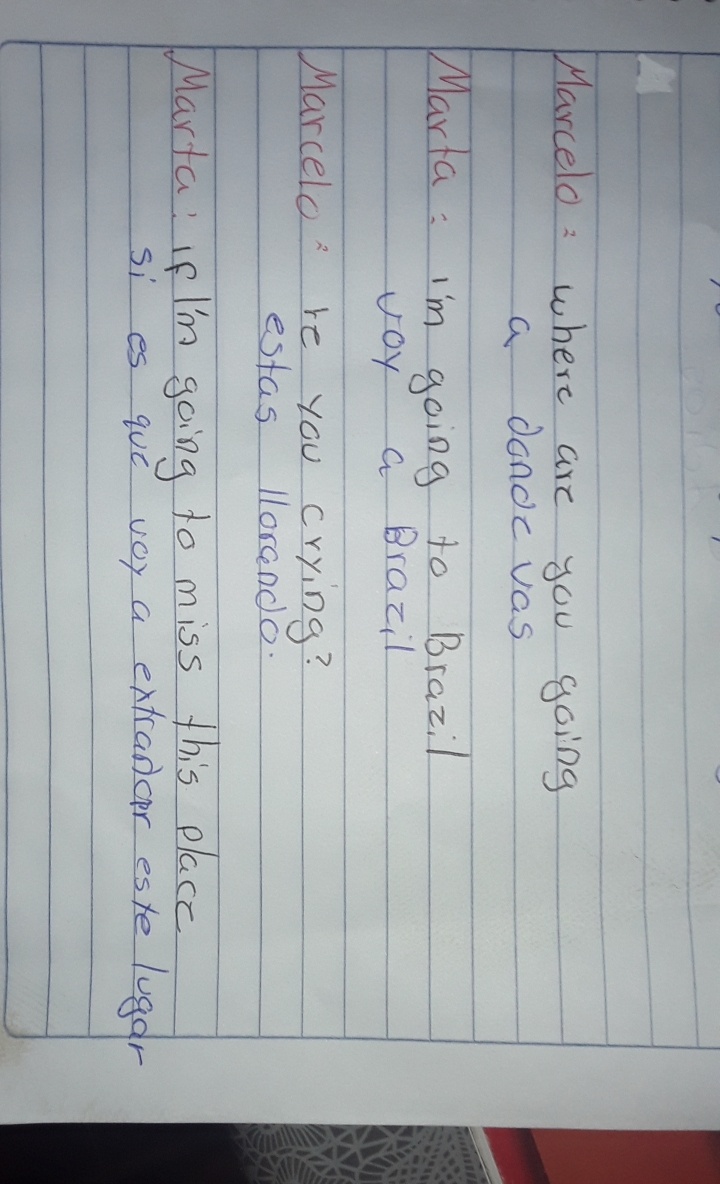 Marcelo: where are you going
a donde vas
Marta: i'm going to Brazil
voy a Brazil
Marcelo: re you crying?
estas llorando.
Marta: if I'm going to miss this place
si es que voy a extrañar este lugar